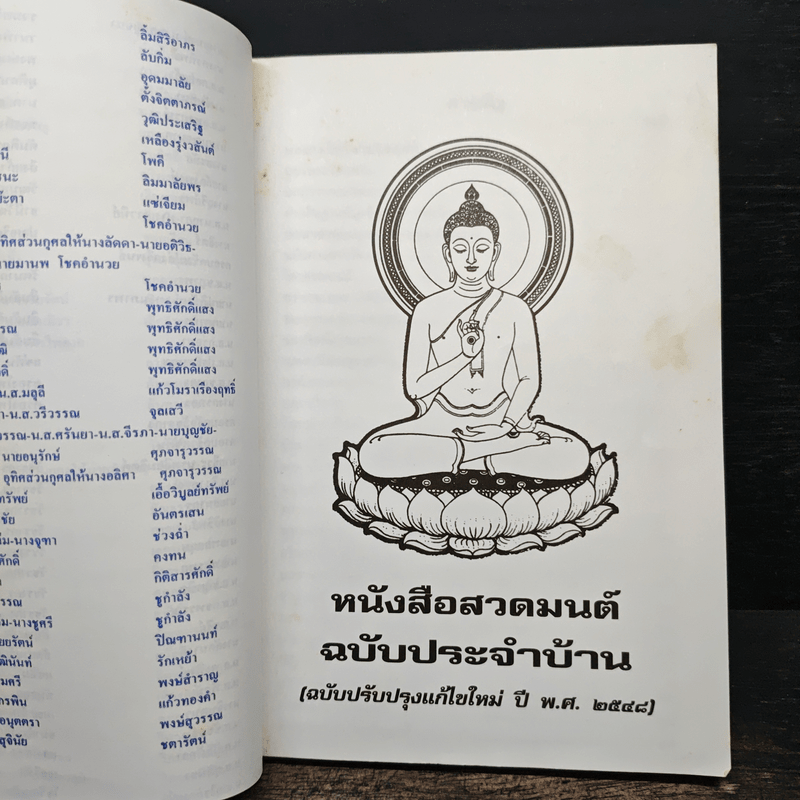 ลิ้มสิริอาภร
ลับกิ่ม
อุดมมาลัย
ตั้งจิตตาภรณ์
วุฒิประเสริฐ
เหลืองรุ่งวสันต์
นี โพคี
ชนะ ลิมมาลัยพร
แซ่เจียม
โชคอำนวย
ทิศส่วนกุศลให้นางลัดดา-นายอติวิธ-
ายมานพ โชคอำนวย
โชคอำนวย
พุทธิศักดิ์แสง
รณ พุทธิศักดิ์แสง
ฒิ พุทธิศักดิ์แสง
ดิ์ พุทธิศักดิ์แสง
น.ส.มลุลี แก้วโมราเรืองฤทธิ์
า-น.ส.วรีวรรณ จุลเสวี
วรรณ-น.ส.ศรันยา-น.ส.จีรภา-นายบุญชัย-
นายอนุรักษ์ ศุภจารุวรรณ
อุทิศส่วนกุศลให้นางอลิศา ศุภจารุวรรณ
ทรัพย์ เอื้อวิบูลย์ทรัพย์
ชัย อันตรเสน
ิม-นางจุฑา ช่วงฉ่ำ
ศักดิ์ คงทน
กิติสารศักดิ์
รรณ ชูกำลัง
ม-นางชูศรี ชูกำลัง
ยยรัตน์ ปิณฑานนท์
ฒินันท์ รักเหย้า
มศรี พงษ์สำราญ
กรพิน แก้วทองคำ
อนุตตรา พงษ์สุวรรณ
สุจินัย ชตารัตน์
หนังสือสวดมนต์
ฉบับประจำบ้าน
(ฉบับปรับปรุงแก้ไขใหม่ ปี พ.ศ. ๒๕๔๘)